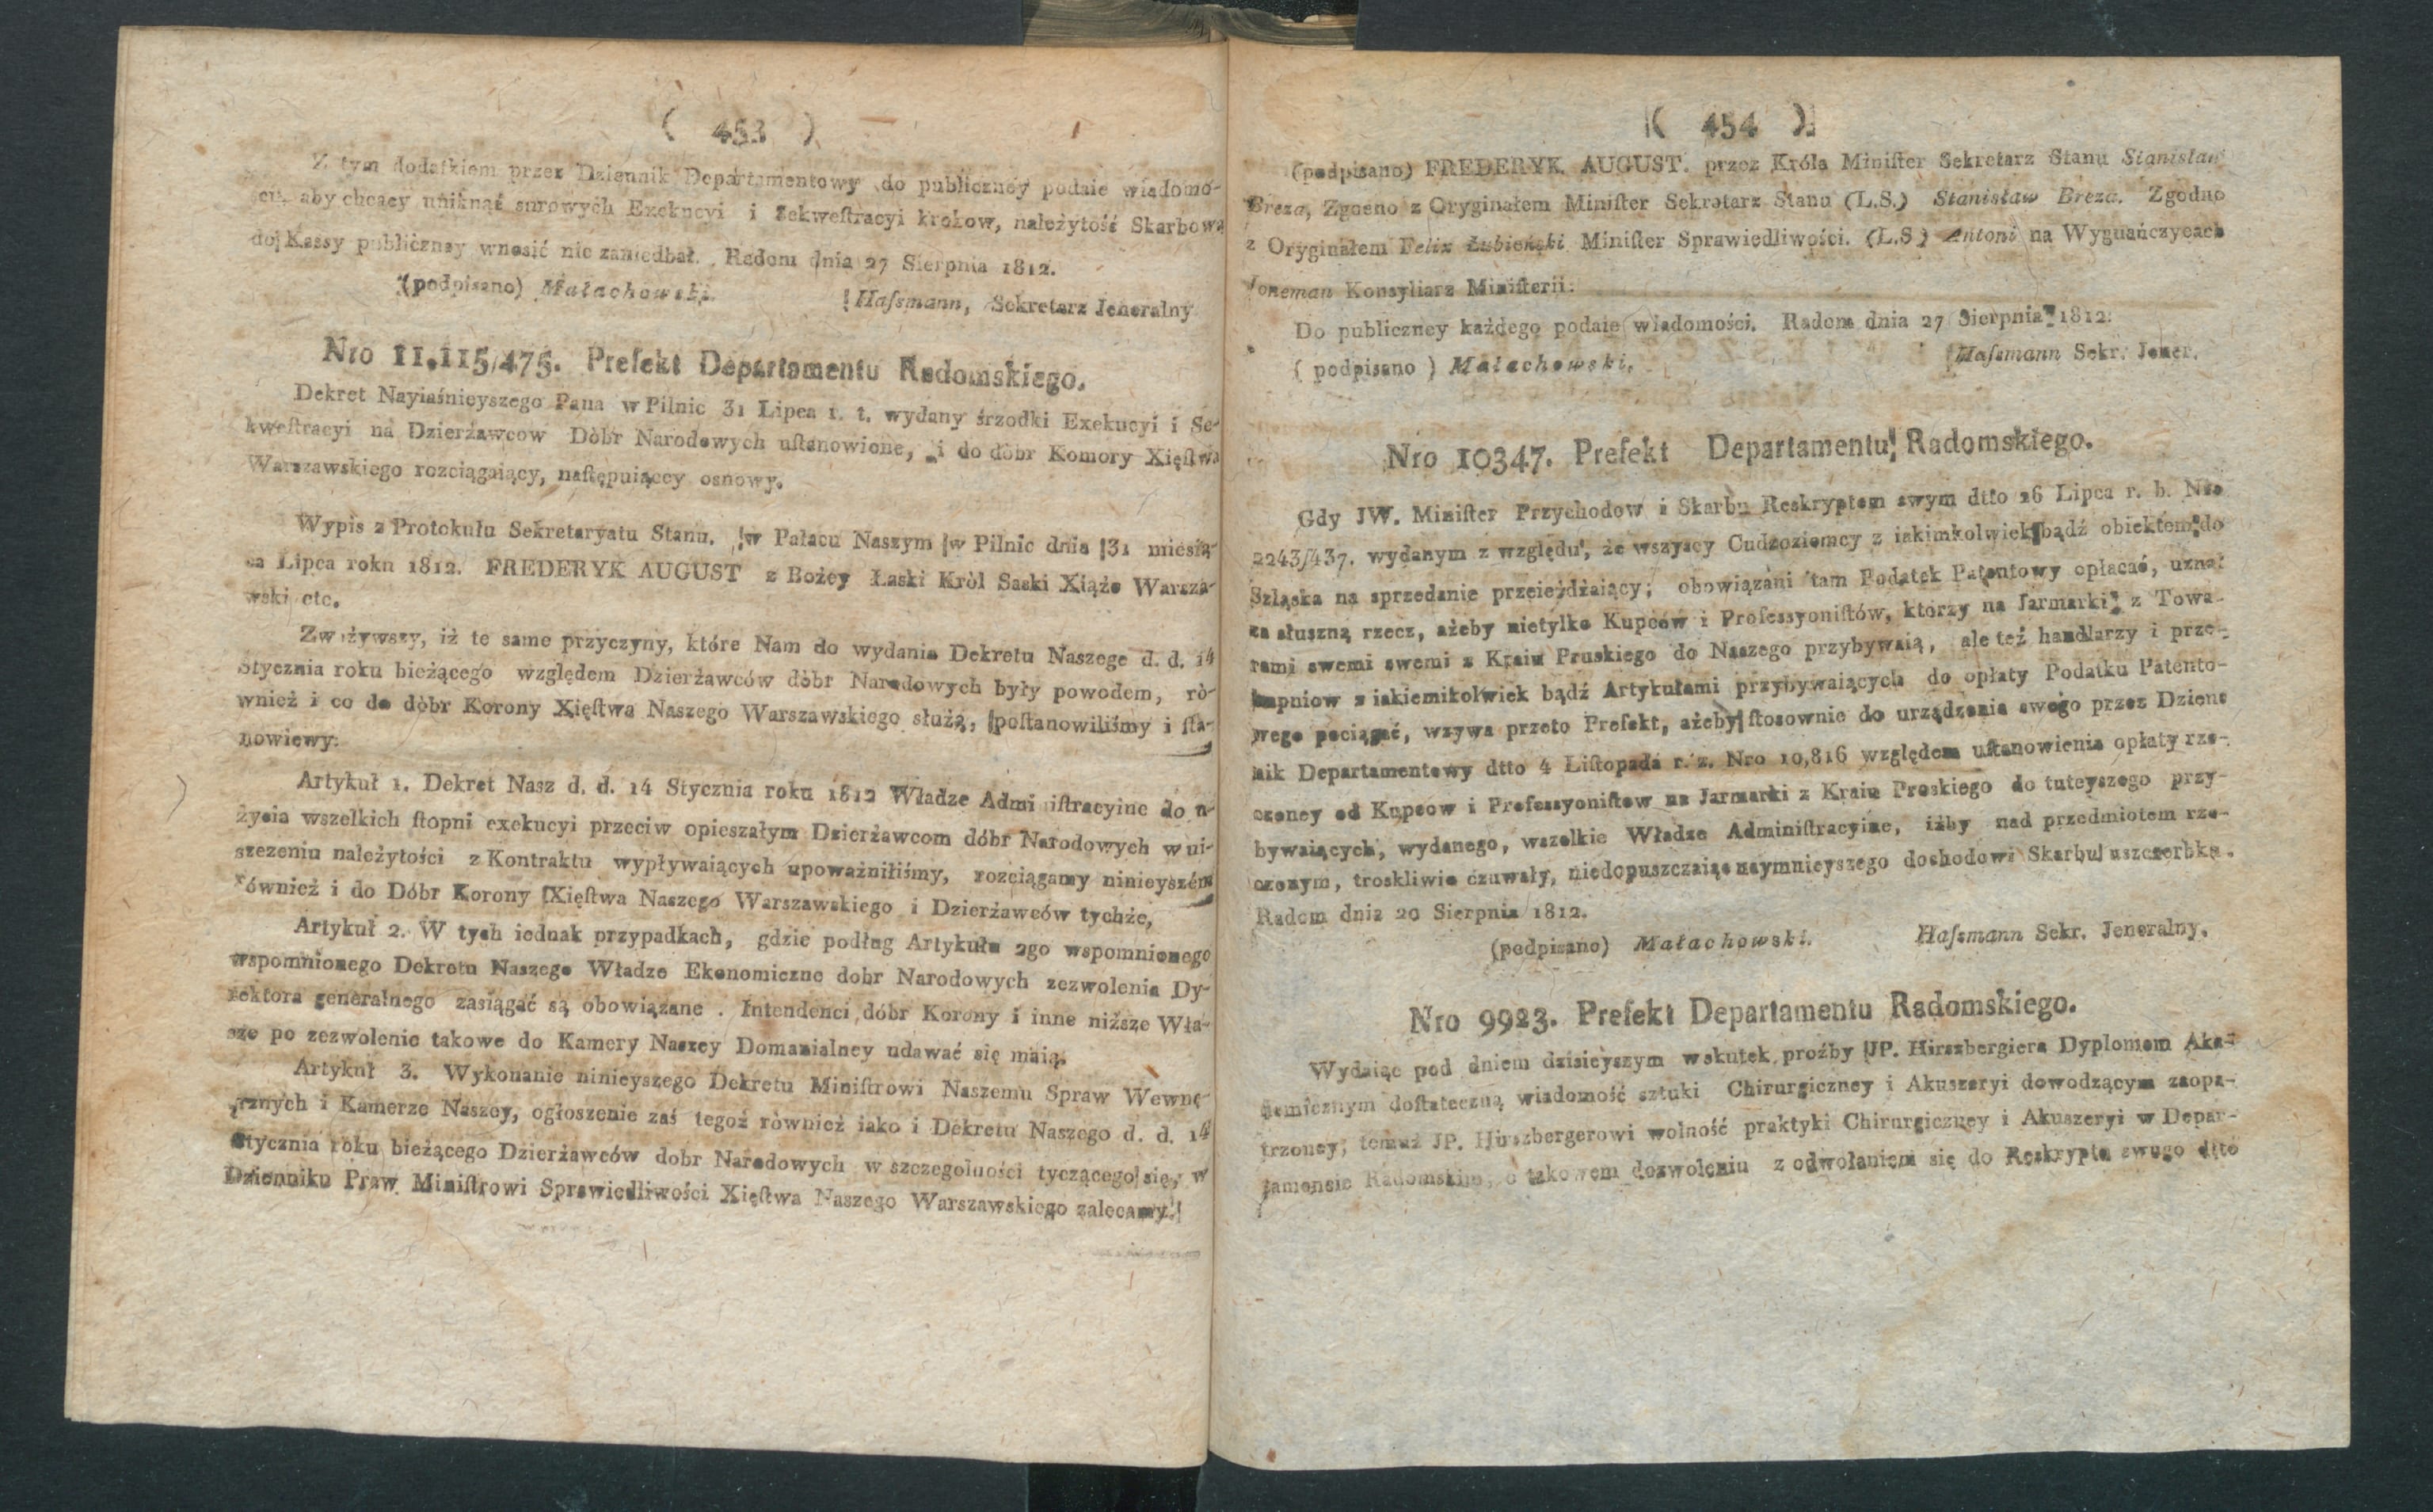 ( 453 )
Z tym dodatkiem przez Dziennik Departamentowy do publiczney podaie wiadomo-
ści, aby chcący uniknąć surowych Exekucyi i Sekwestracyi krokow, należytość Skarbową
do Kassy publiczney wnosić nie zaniedbał. Radom dnia 27 Sierpnia 1812.
(podpisano) Małachowski. Hassmann, Sekretarz Jeneralny
Nro 11,115/475. Prefekt Departamentu Radomskiego.
Dekret Nayiaśnieyszego Pana w Pilnic 31 Lipca r. t. wydany śrzodki Exekucyi i Se-
kwestracyi na Dzierżawcow Dòbr Narodowych ustanowione, i do dòbr Komory Xięstwa
Warszawskiego rozciągaiący, następuiąccy osnowy.
Wypis z Protokułu Sekretaryatu Stanu. w Pałacu Naszym w Pilnic dnia 31 miesią-
ca Lipca roku 1812. FREDERYK AUGUST z Bożey Łaski Kròl Saski Xiąże Warsza-
wski etc.
Zważywszy, iż te same przyczyny, które Nam do wydania Dekretu Naszego d. d. 14
Stycznia roku bieżącego względem Dzierżawców dòbr Narodowych były powodem, rò-
wnież i co do dòbr Korony Xięstwa Naszego Warszawskiego służą, postanowiliśmy i sta-
nowiewy:
Artykuł 1. Dekret Nasz d. d. 14 Stycznia roku 1812 Władze Admi istracyine do u-
życia wszelkich stopni exekucyi przeciw opieszałym Dzierżawcom dóbr Narodowych w ui-
szczeniu należytości z Kontraktu wypływaiących upoważniłiśmy, rozciągamy ninieyszém
również i do Dóbr Korony Xięstwa Naszego Warszawskiego i Dzierżawców tychże,
Artykuł 2. W tych iednak przypadkach, gdzie podług Artykułu 2go wspomnionego
wspomnionego Dekretu Naszego Władze Ekonomiczne dobr Narodowych zezwolenia Dy-
rektora generalnego zasiągać są obowiązane . Intendenci dóbr Korony i inne niższe Wła-
dze po zezwolenie takowe do Kamery Naszey Domanialney udawać się maią.
Artykuł 3. Wykonanie ninieyszego Dekretu Ministrowi Naszemu Spraw Wewnę-
trznych i Kamerze Naszey, ogłoszenie zaś tegoż również iako i Dekretu Naszego d. d. 14
Stycznia roku bieżącego Dzierżawców dobr Narodowych w szczegolności tyczącego się, w
Dzienniku Praw Ministrowi Sprawiedliwości Xięstwa Naszego Warszawskiego zalecamy.
( 454 )
(podpisano) FREDERYK AUGUST. przez Króla Minister Sekretarz Stanu Stanisław
Breza, Zgodno z Oryginałem Minister Sekretarz Stanu (L.S.) Stanisław Breza. Zgodno
z Oryginałem Felix Łubieński Minister Sprawiedliwości. (L.S) Antoni na Wyguańczycach
Joneman Konsyliarz Ministerii.
Do publiczney każdego podaie wiadomości. Radom dnia 27 Sierpnia 1812.
( podpisano ) Małachowski. Hassmann Sekr. Jener.
Nro 10347. Prefekt Departamentu Radomskiego.
Gdy JW. Minister Przychodow i Skarbu Reskryptem swym dtto 26 Lipca r. b. Nro
2243/437. wydanym z względu, że wszyscy Cudzoziemcy z iakimkolwiek bądź obiektem do
Szląska na sprzedanie przeieżdżaiący; obowiązani tam Podatek Patentowy opłacać, uznał
za słuszną rzecz, ażeby nietylko Kupców i Professyonistów, którzy na Jarmarki z Towa-
rami swemi swemi z Kraiu Pruskiego do Naszego przybywaią, ale też handlarzy i prze-
kupniow z iakiemikolwiek bądź Artykułami przybywaiących do opłaty Podatku Patento-
wego pociągać, wzywa przeto Prefekt, ażeby stosownie do urządzenia swego przez Dzien-
nik Departamentowy dtto 4 Listopada r. z. Nro 10,816 względem ustanowienia opłaty rze-
czoney od Kupcow i Professyonistow na Jarmarki z Kraiu Pruskiego do tuteyszego przy-
bywaiących, wydanego, wszelkie Władze Administracyine, iżby nad przedmiotem rze-
czonym, troskliwie czuwały, niedopuszczaiąc naymnieyszego dochodowi Skarbu uszczerbku.
Radom dnia 20 Sierpnia 1812.
(podpisano) Małachowski. Hassmann Sekr. Jeneralny.
Nro 9923. Prefekt Departamentu Radomskiego.
Wydaiąc pod dniem dzisieyszym wskutek proźby JP. Hirszbergiera Dyplomem Aka-
demicznym dostateczną wiadomość sztuki Chirurgiczney i Akuszeryi dowodzącym zaopa-
trzoney, temuż JP. Hirszbergerowi wolność praktyki Chirurgiczney i Akuszeryi w Depar-
tamencie Radomskim, o takowem dozwoleniu z odwołaniem się do Reskryptu swego dtto